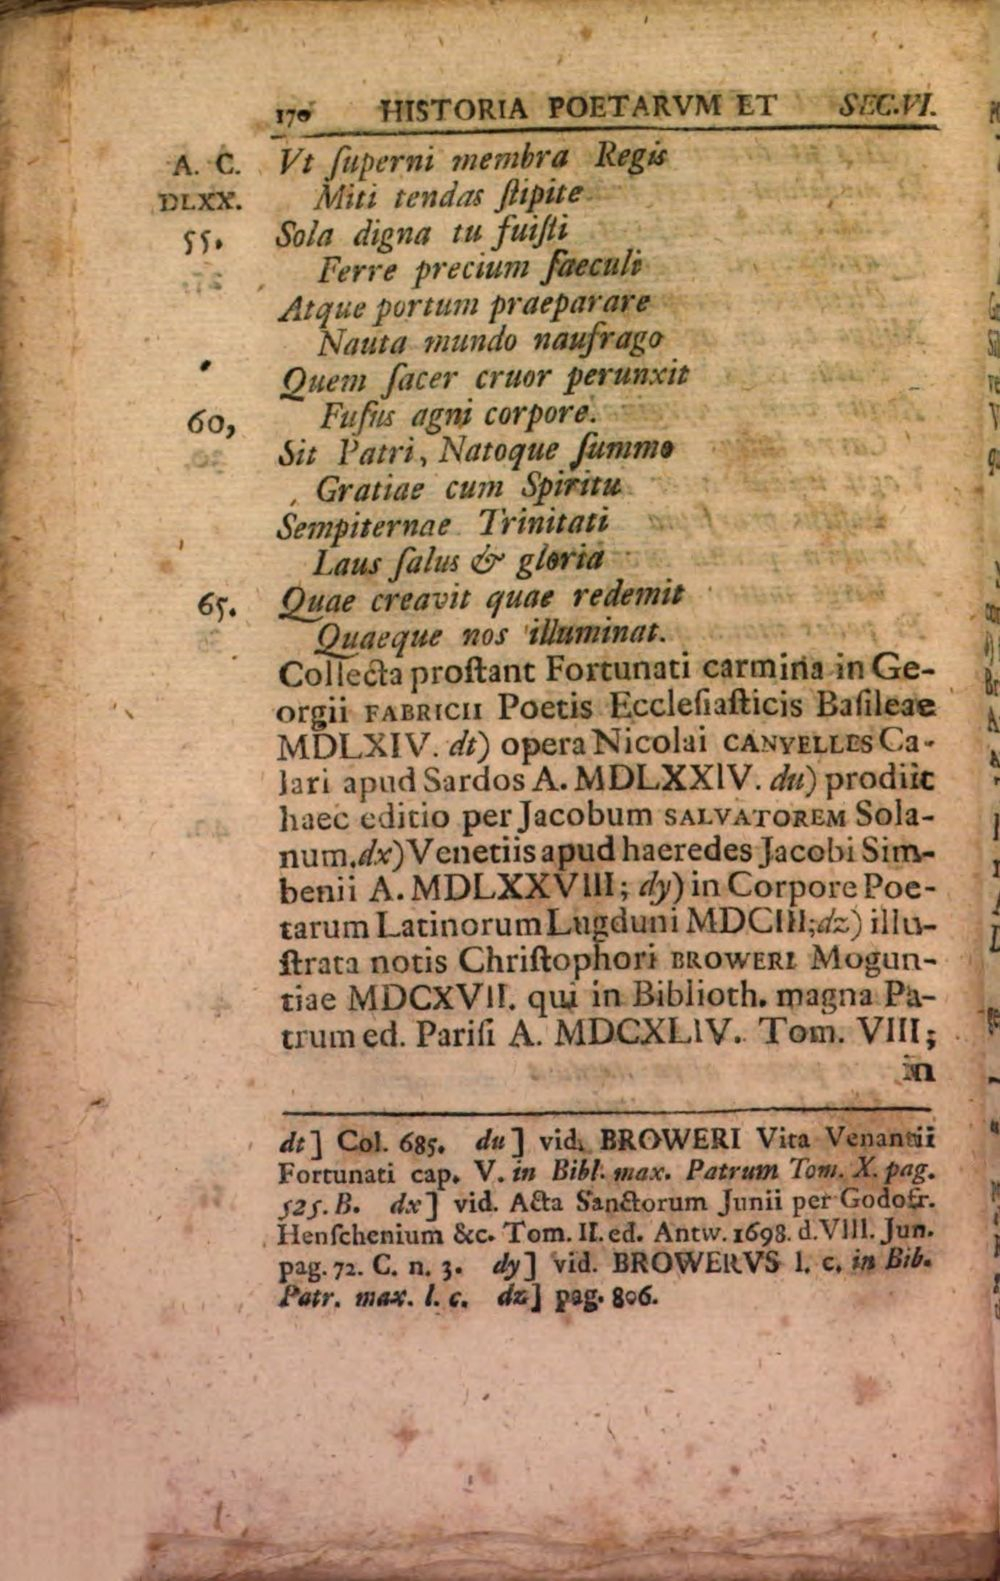 170 HISTORIA POETARVM ET SEC.VI.
A. C. Vt ſuperni membra Regis
DLXX. Miti tendas ſtipite
55. Sola digna tu fuiſti
Ferre precium ſaeculi
Atque portum praeparare
Nauta mundo naufrago
Quem ſacer cruor perunxit
60, Fuſus agni corpore.
Sit Patri, Natoque ſummo
Gratiae cum Spiritu
Sempiternae Trinitati
Laus ſalus & gloria
65. Quae creavit quae redemit
Quaeque nos illuminat.
Collecta proſtant Fortunati carmina in Ge-
orgii FABRICII Poetis Eccleſiaſticis Baſileae
MDLXIV. dt) opera Nicolai CANYELLES Ca-
lari apud Sardos A. MDLXXIV. du) prodiit
haec editio per Jacobum SALVATOREM Sola-
num, dx) Venetiis apud haeredes Jacobi Sim-
benii A. MDLXXVIII; dy) in Corpore Poe-
tarum Latinorum Lugduni MDCIII; dz) illu-
ſtrata notis Chriſtophori BROWERI Mogun-
tiae MDCXVII. qui in Biblioth. magna Pa-
trum ed. Pariſi A. MDCXLIV. Tom. VIII;
in
dt] Col. 685. du] vid. BROWERI Vita Venantii
Fortunati cap. V. in Bibl. max. Patrum Tom. X. pag.
525. B. dx] vid. Acta Sanctorum Junii per Godofr.
Henſchenium &c. Tom. II. ed. Antw. 1698. d. VIII. Jun.
pag. 72. C. n. 3. dy] vid. BROWERVS l. c. in Bib.
Patr. max. l. c. dz] pag. 806.